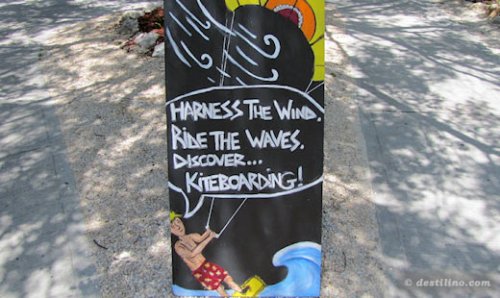 HARNESS THE WIND.
RIDE THE WAVES.
DISCOVER...
KITEBOARDING!
© destilino.com